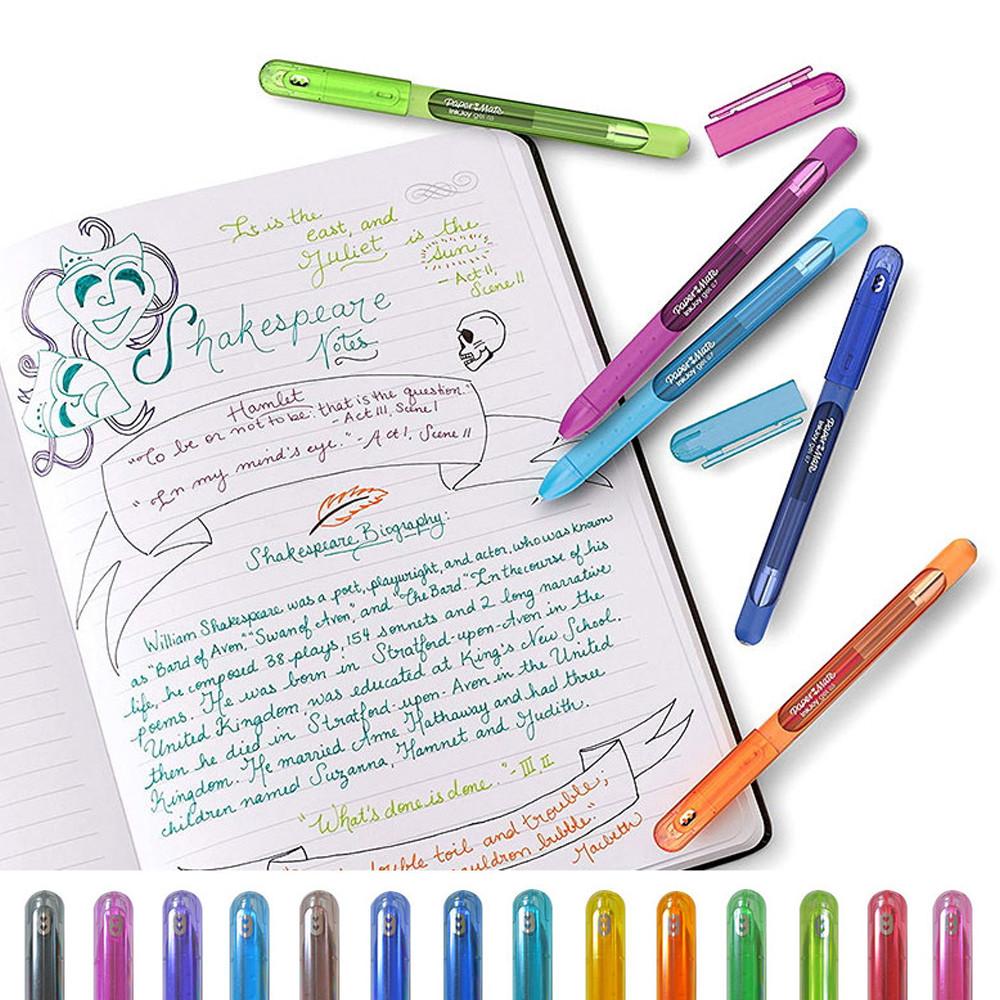 Paper Mate
InkJoy gel 0.7
It is the
east, and
Juliet is the
sun.
- Act II,
Scene II
Shakespeare
Notes
Hamlet
"To be or not to be: that is the question."
- Act III, Scene I
"In my mind's eye." - Act I, Scene II
Shakespeare Biography:
William Shakespeare was a poet, playwright, and actor, who was known
as "Bard of Avon," "Swan of Avon," and "The Bard." In the course of his
life, he composed 38 plays, 154 sonnets and 2 long narrative
poems. He was born in Stratford-upon-Avon in the
United Kingdom, was educated at King's New School,
then he died in Stratford-upon-Avon in the United
Kingdom. He married Anne Hathaway and had three
children named Suzanna, Hamnet and Judith.
"What's done is done." - III, II
double toil and trouble;
cauldron bubble."
Macbeth
Paper Mate
InkJoy gel 0.7
Paper Mate
InkJoy gel 0.7
Paper Mate
InkJoy gel 0.7
Paper Mate
InkJoy gel 0.7